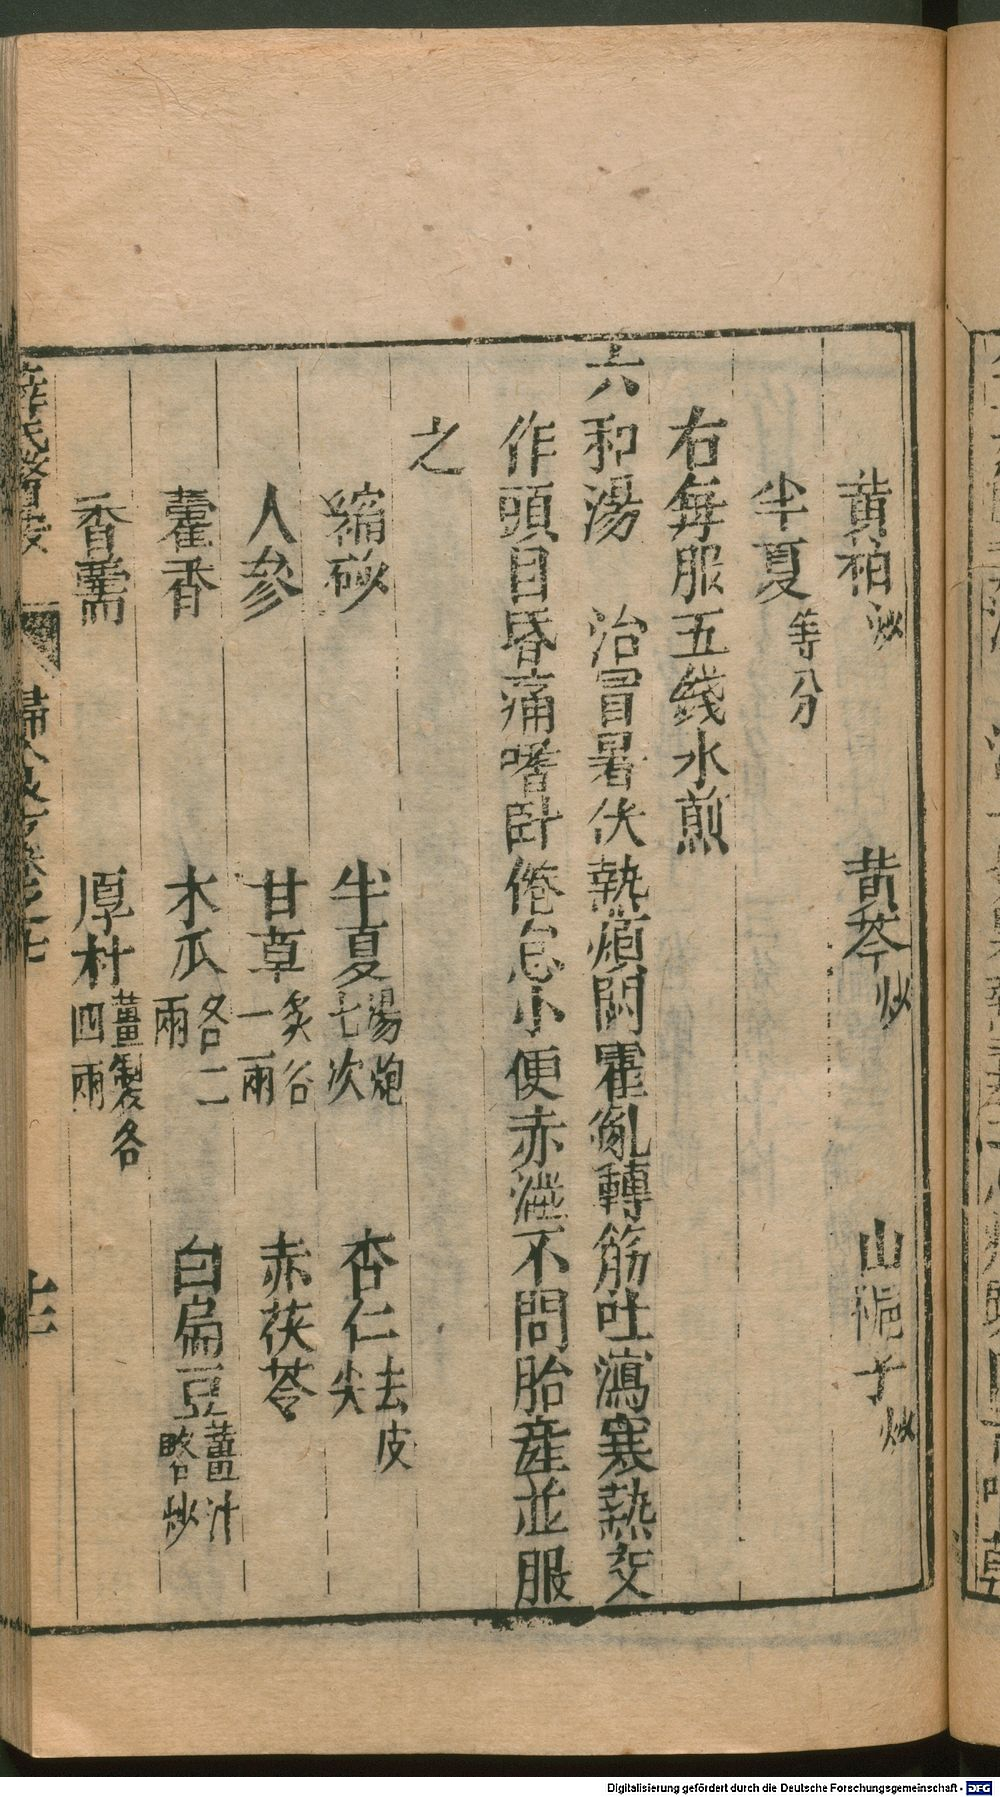 黄栢炒 黄芩炒 山梔子炒
半夏等分
右每服五錢水煎
六和湯 治冒暑伏熱煩悶霍亂轉筋吐瀉寒熱交
作頭目昏痛嗜卧倦怠小便赤澁不問胎產並服
之
縮砂 半夏湯炮七次 杏仁去皮尖
人參 甘草炙各一兩 赤茯苓
藿香 木瓜各二兩 白扁豆薑汁畧炒
香薷 厚朴薑製各四兩
薛氏醫按 婦人良方卷之 十三
Digitalisierung gefördert durch die Deutsche Forschungsgemeinschaft - DFG